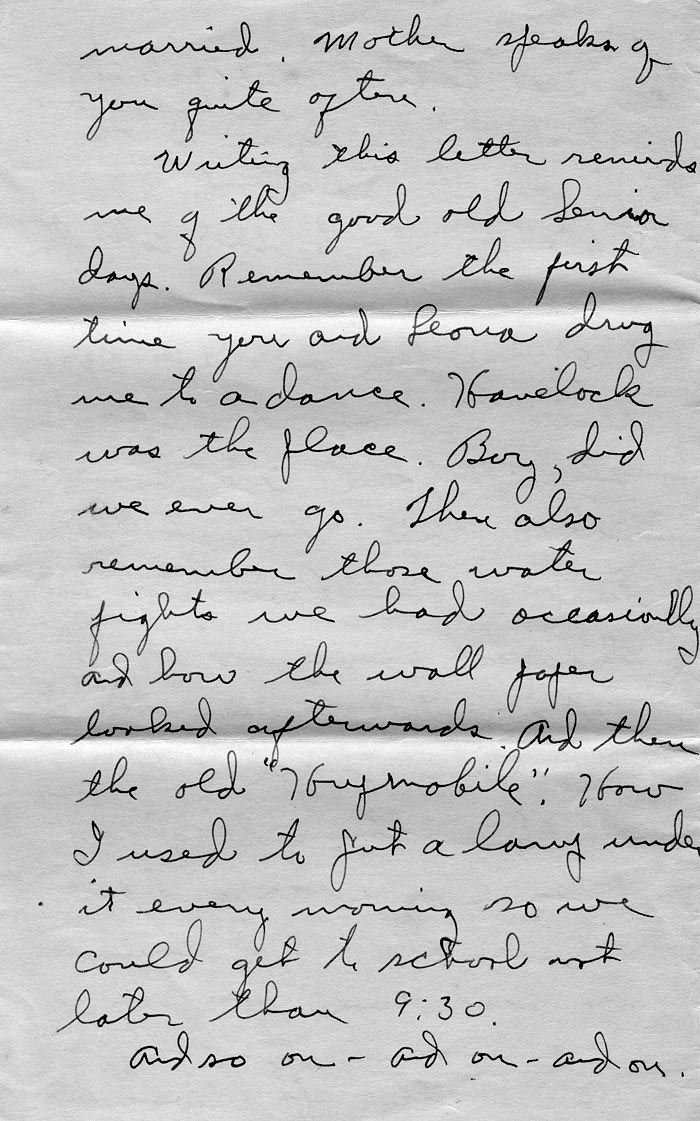 married. Mother speaks of
you quite often.
Writing this letter reminds
me of the good old Senior
days. Remember the first
time you and Leona drug
me to a dance. Havelock
was the place. Boy, did
we ever go. Then also
remember those water
fights we had occasionlly
and how the wall paper
looked afterwards. And then
the old "Huymobile". How
I used to put a lamp under
it every morning so we
could get to school not
later than 9:30.
And so on - and on - and on.